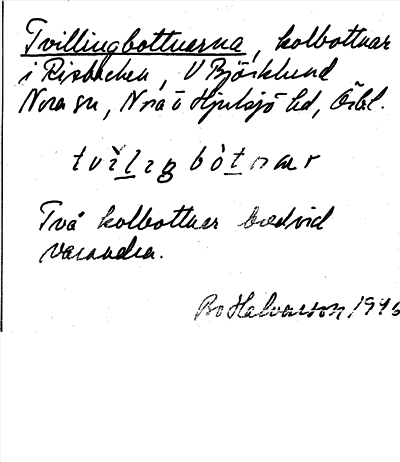 Tvillingbottnarna, kolbottnar
i Risbacken, V Björklund
Nora sn, Nora o Hjulsjö hd, Örbl.
Två kolbottnar bredvid
varandra.
Bo Halvarson 1946